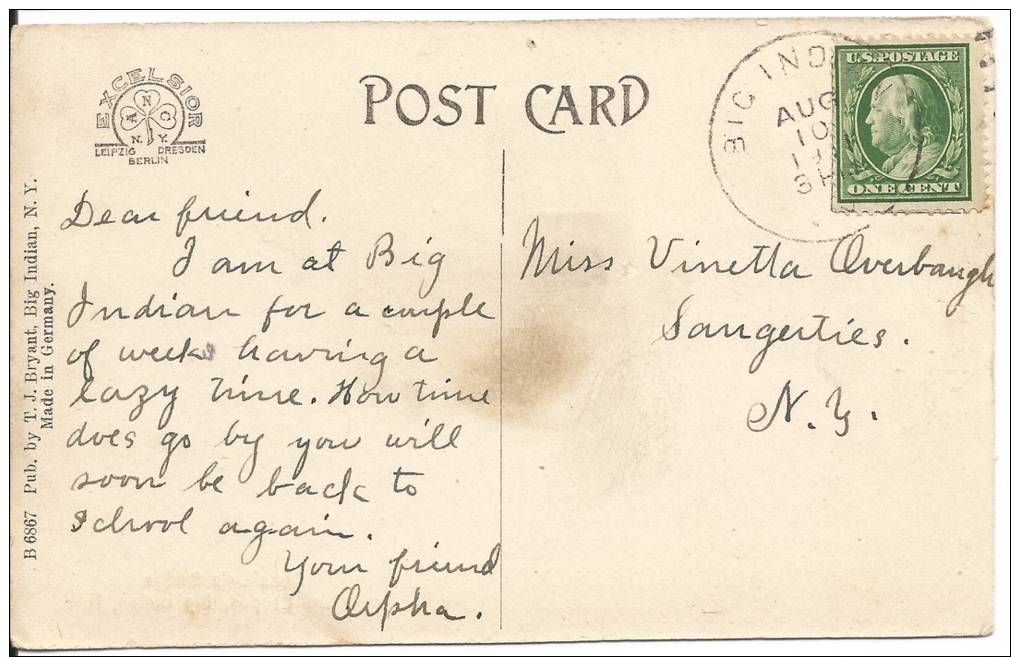 EXCELSIOR
ANC
N. Y.
LEIPZIG DRESDEN
BERLIN
POST CARD
BIG IND
AUG
10
U.S. POSTAGE
ONE CENT
B 6867 Pub. by T. J. Bryant, Big Indian, N. Y.
Made in Germany.
Dear friend.
I am at Big
Indian for a couple
of weeks having a
lazy time. How time
does go by you will
soon be back to
school again.
Your friend
Orpha.
Miss Vinetta Overbaugh
Saugerties.
N. Y.